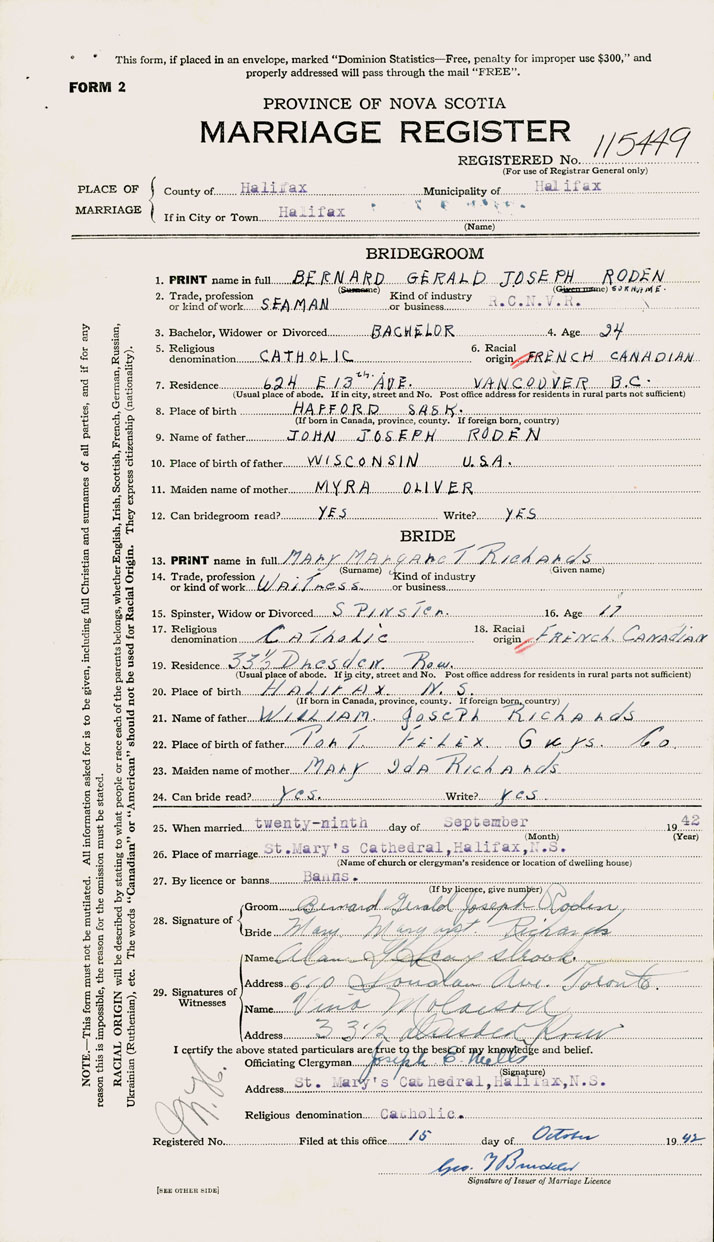 This form, if placed in an envelope, marked "Dominion Statistics—Free, penalty for improper use $300," and
properly addressed will pass through the mail "FREE".
FORM 2
PROVINCE OF NOVA SCOTIA
MARRIAGE REGISTER
REGISTERED No. 115449
(For use of Registrar General only)
PLACE OF MARRIAGE
County of Halifax Municipality of Halifax
If in City or Town Halifax
(Name)
BRIDEGROOM
1. PRINT name in full BERNARD GERALD JOSEPH RODEN
(Surname) (Given name) SURNAME.
2. Trade, profession or kind of work SEAMAN Kind of industry or business R.C.N.V.R.
3. Bachelor, Widower or Divorced BACHELOR 4. Age 24
5. Religious denomination CATHOLIC 6. Racial origin FRENCH CANADIAN
7. Residence 624 E 13th AVE. VANCOUVER B.C.
(Usual place of abode. If in city, street and No. Post office address for residents in rural parts not sufficient)
8. Place of birth HAFFORD SASK.
(If born in Canada, province, county. If foreign born, country)
9. Name of father JOHN JOSEPH RODEN
10. Place of birth of father WISCONSIN U.S.A.
11. Maiden name of mother MYRA OLIVER
12. Can bridegroom read? YES Write? YES
BRIDE
13. PRINT name in full Mary Margaret Richards
(Surname) (Given name)
14. Trade, profession or kind of work Waitress Kind of industry or business
15. Spinster, Widow or Divorced SPINSTER. 16. Age 17
17. Religious denomination Catholic 18. Racial origin FRENCH. CANADIAN
19. Residence 33½ Dresden Row.
(Usual place of abode. If in city, street and No. Post office address for residents in rural parts not sufficient)
20. Place of birth HALIFAX N.S.
(If born in Canada, province, county. If foreign born, country)
21. Name of father WILLIAM. Joseph Richards
22. Place of birth of father PORT FELEX Guys. Co.
23. Maiden name of mother Mary Ida Richards
24. Can bride read? yes. Write? yes.
25. When married twenty-ninth day of September 1942
(Month) (Year)
26. Place of marriage St.Mary's Cathedral,Halifax,N.S.
(Name of church or clergyman's residence or location of dwelling house)
27. By licence or banns Banns.
(If by licence, give number)
28. Signature of
Groom Bernard Gerald Joseph Roden
Bride Mary Margret. Richards
29. Signatures of Witnesses
Name Alan
Address 610 Ave. Toronto.
Name
Address 33½ Dresden Row
I certify the above stated particulars are true to the best of my knowledge and belief.
Officiating Clergyman Joseph E. Mills
(Signature)
Address St. Mary's Cathedral,Halifax,N.S.
Religious denomination Catholic.
Registered No. Filed at this office 15 day of October 1942
Geo.
Signature of Issuer of Marriage Licence
[SEE OTHER SIDE]
NOTE.—This form must not be mutilated. All information asked for is to be given, including full Christian and surnames of all parties, and if for any
reason this is impossible, the reason for the omission must be stated.
RACIAL ORIGIN will be described by stating to what people or race each of the parents belongs, whether English, Irish, Scottish, French, German, Russian,
Ukrainian (Ruthenian), etc. The words "Canadian" or "American" should not be used for Racial Origin. They express citizenship (nationality).